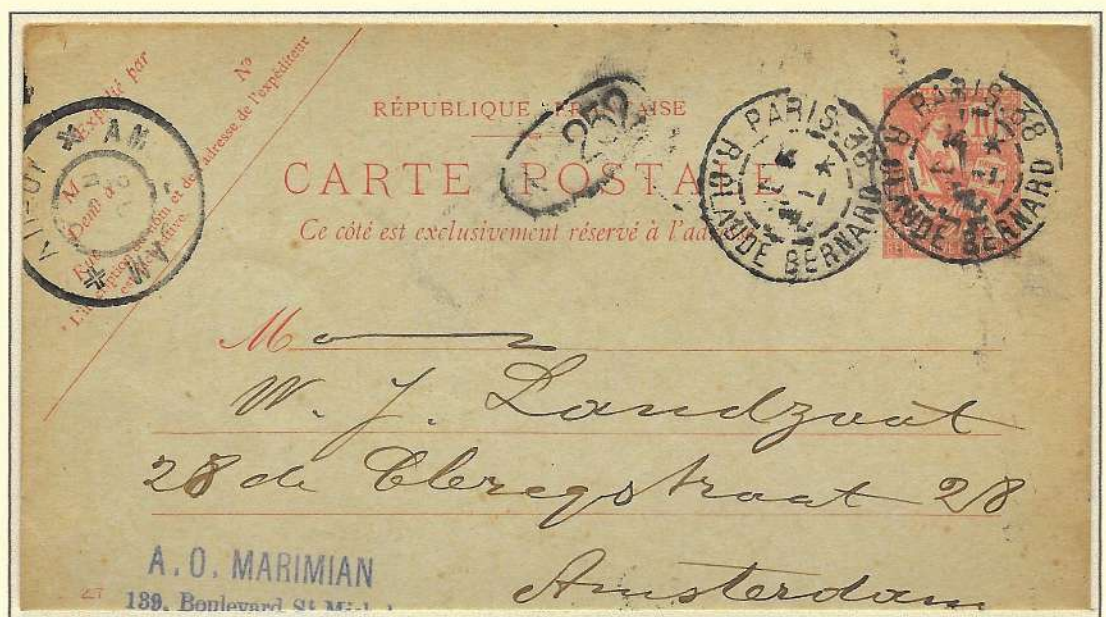 Expédié par
M
Demt à
Rue
No
L'inscription du nom et de l'adresse de l'expéditeur
est facultative.
RÉPUBLIQUE FRANÇAISE
CARTE POSTALE
Ce côté est exclusivement réservé à l'ad
252
PARIS-38
R. CLAUDE BERNARD
PARIS-38
R. CLAUDE BERNARD
10
AM
AM
M
W. J. Landzaat
28 de Clercqstraat 28
Amsterdam
A. O. MARIMIAN
139, Boulevard St Michel